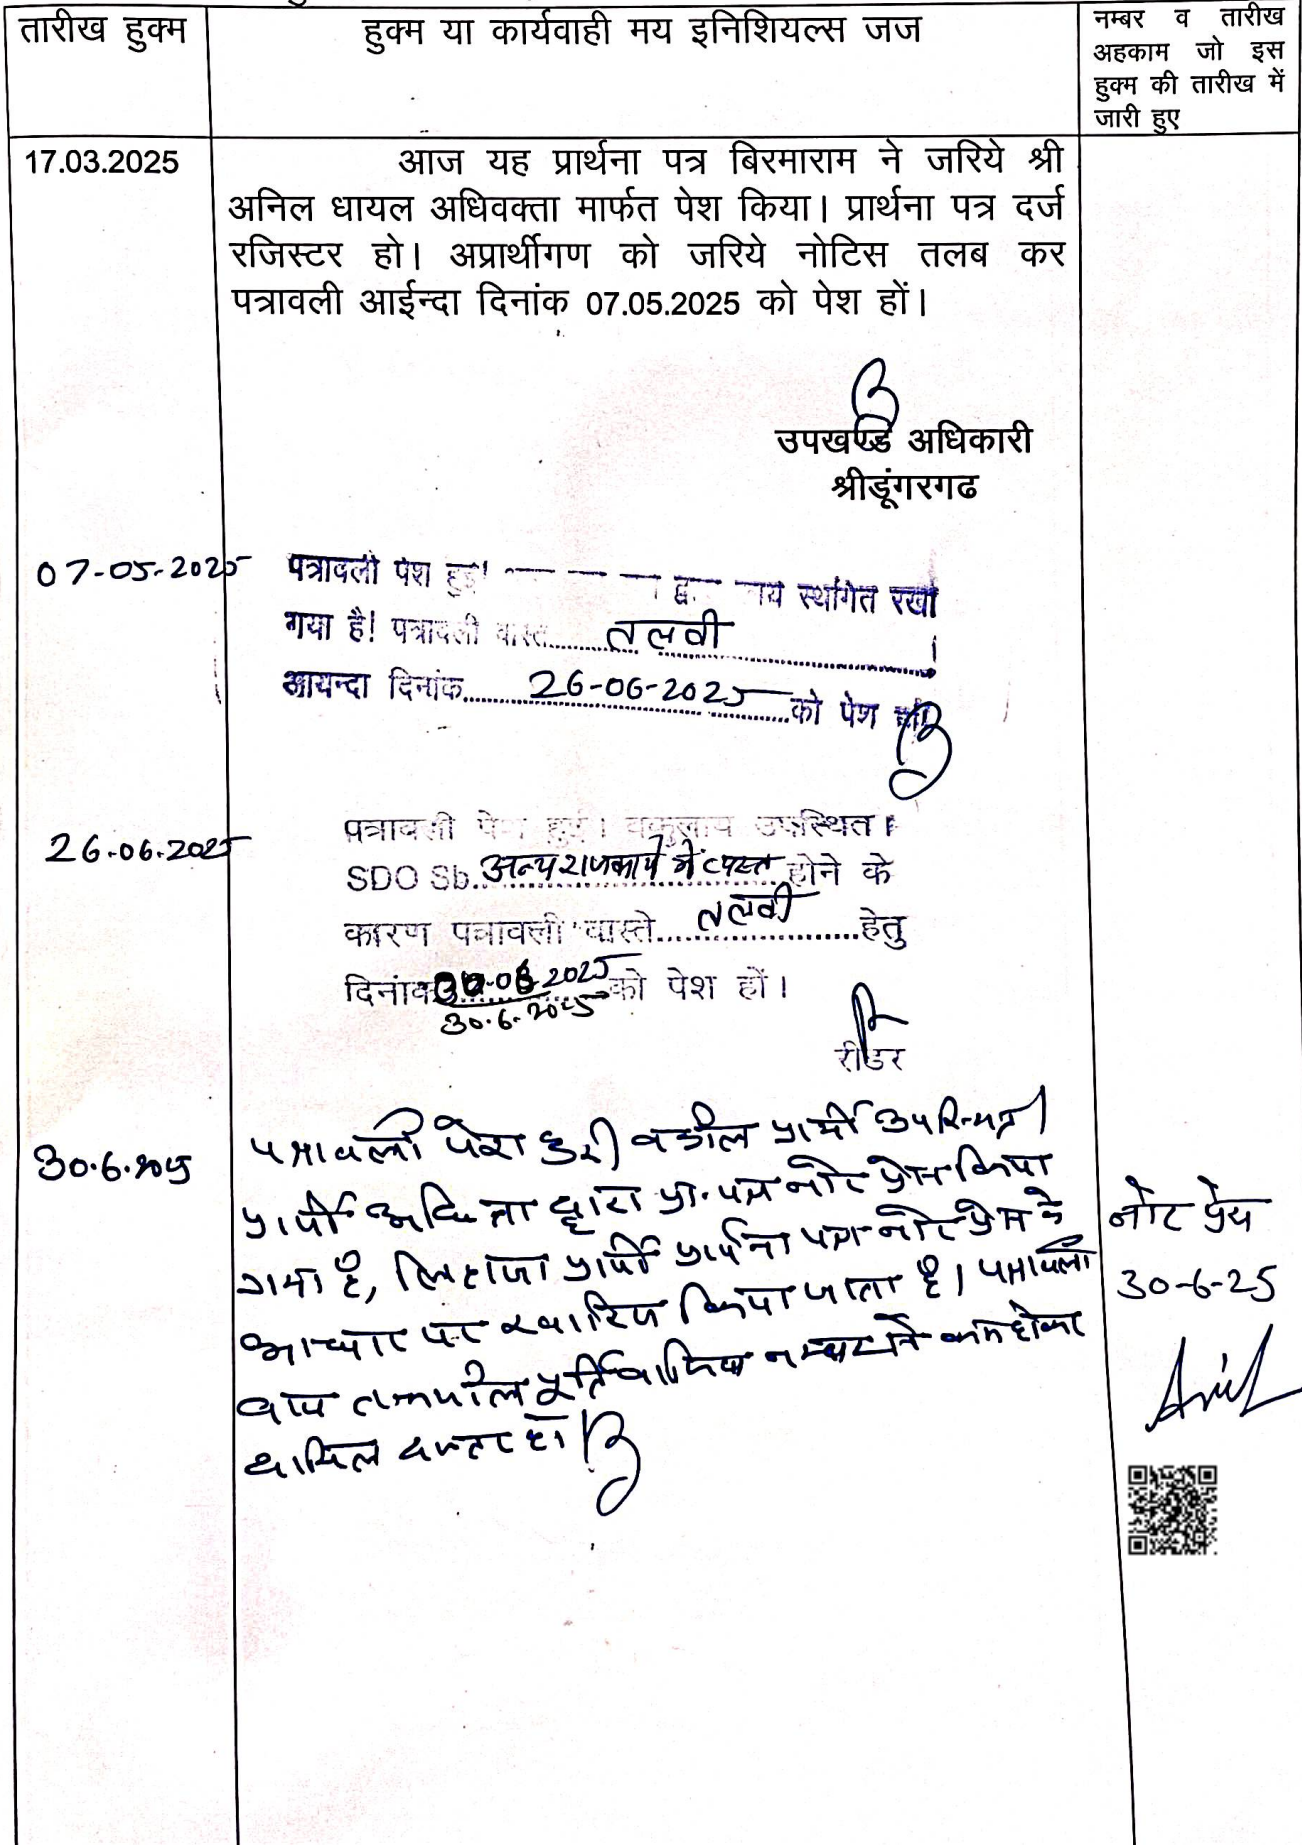 तारीख हुक्म
हुक्म या कार्यवाही मय इनिशियल्स जज
नम्बर व तारीख
अहकाम जो इस
हुक्म की तारीख में
जारी हुए
17.03.2025
आज यह प्रार्थना पत्र बिरमाराम ने जरिये श्री
अनिल धायल अधिवक्ता मार्फत पेश किया। प्रार्थना पत्र दर्ज
रजिस्टर हो। अप्रार्थीगण को जरिये नोटिस तलब कर
पत्रावली आईन्दा दिनांक 07.05.2025 को पेश हों।
उपखण्ड अधिकारी
श्रीडूंगरगढ
07-05-2025 पत्रावली पेश हुई! स्थगित रखा
गया है! पत्रावली वास्ते तलवी
आयन्दा दिनांक 26-06-2025 को पेश हो
26.06.2025 पत्रावली पेश हुई। वकुलाय उपस्थित।
SDO Sb. अन्य राजकार्य में व्यस्त होने के
कारण पत्रावली वास्ते तलवी हेतु
दिनांक 30.6.2025 को पेश हों।
रीडर
30.6.2025 पत्रावली पेश हुई। वकील प्रार्थी उपस्थित।
प्रार्थी द्वारा प्रा.पत्र नोट प्रेस किया
गया है, लिहाजा प्रार्थी प्रार्थना पत्र नोट प्रेस के
आधार पर खारिज किया जाता है। पत्रावली
बाद तकमील पूर्ति नम्बर से कम होकर
दाखिल दफ्तर हो।
नोट प्रेस
30-6-25
Anil